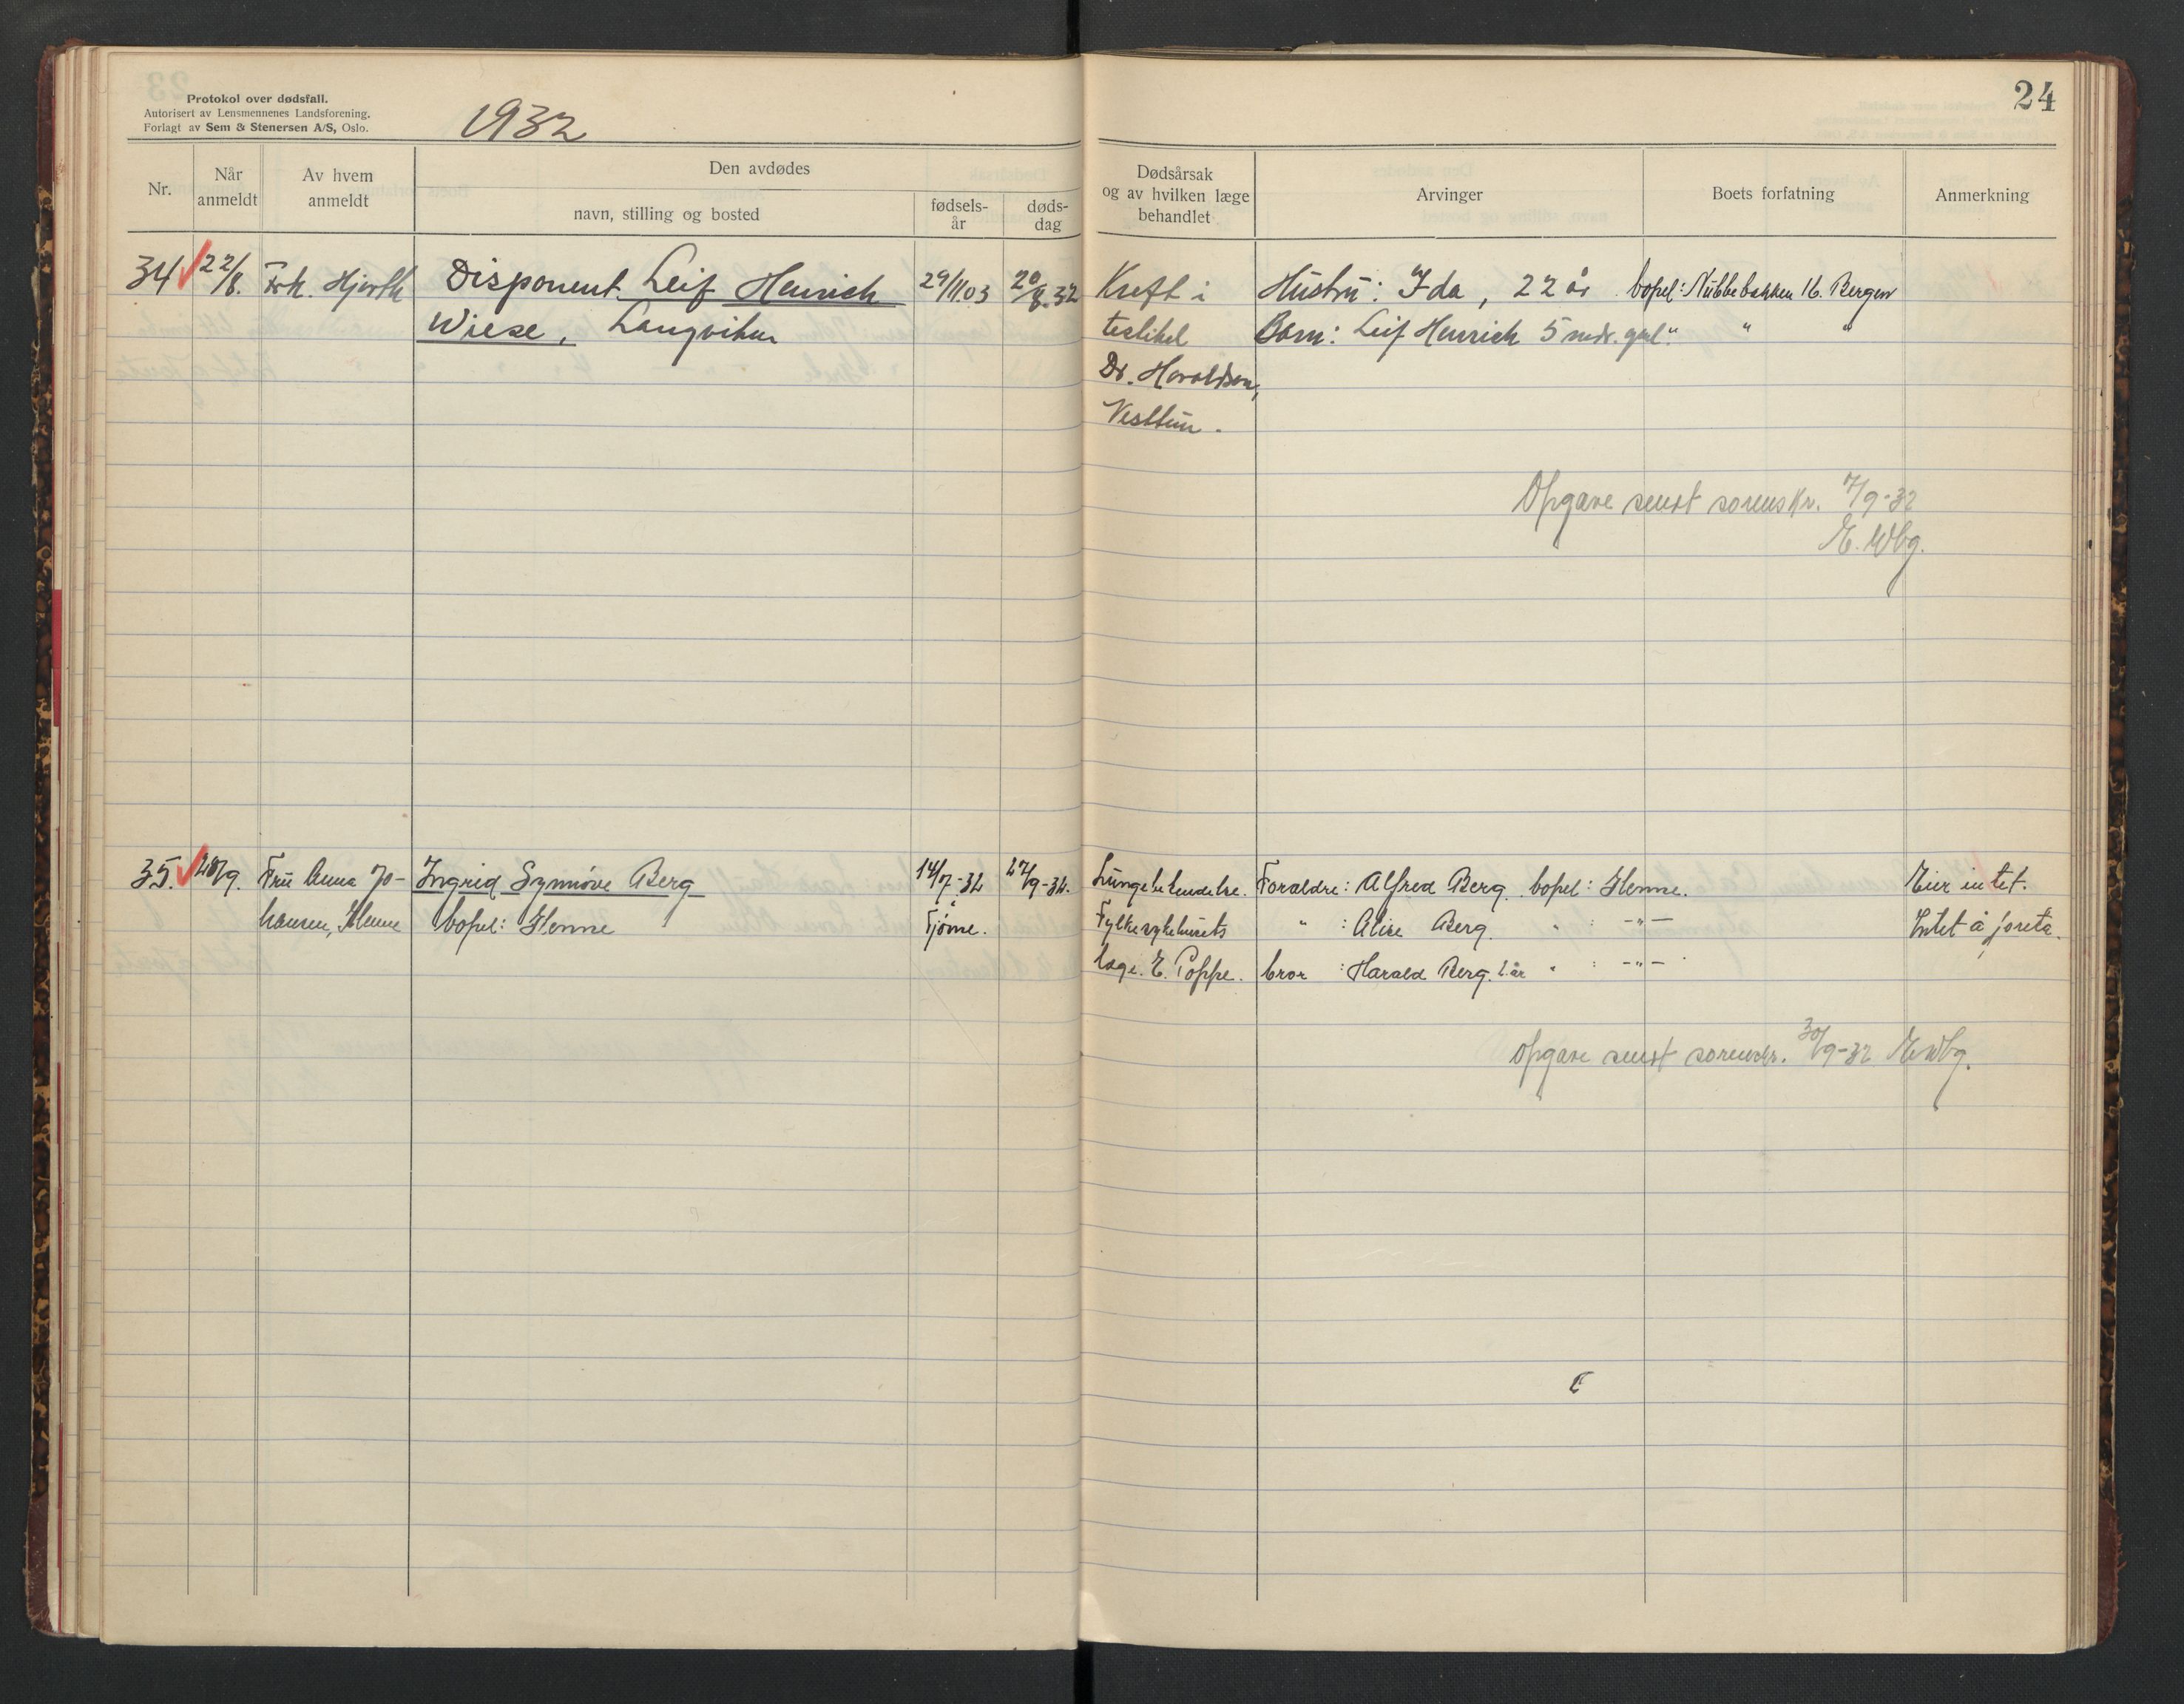 Protokol over dødsfall.
Autorisert av Lensmennenes Landsforening.
Forlagt av Sem & Stenersen A/S, Oslo.
1932
24
Nr.
Når anmeldt
Av hvem anmeldt
Den avdødes
navn, stilling og bosted
fødsels-år
døds-dag
Dødsårsak og av hvilken læge behandlet
Arvinger
Boets forfatning
Anmerkning
34 22/8. Frk. Hjorth Disponent Leif Henrich 29/11.03 20/8.32 Kreft i Hustru: Ida, 22 år bopel: Nubbebakken 16. Bergen
Wiese, Langviken testikel Barn: Leif Henrich 5 mdr. gml. " " "
Dr. Haraldsen,
Nesttun.
Opgave sendt sorenskr. 7/9-32
E. Wbg.
35. 28/9. Fru Anna Jo- Ingrid Synnøve Berg 14/7-32 27/9-32. Lungebetendelse. Foraldre: Alfred Berg. bopel: Henne. Eier intet.
hansen, Henne bopel: Henne Tjøme. Fylkessykehusets " : Alise Berg. " : -"- Intet å foreta.
læge E. Poppe. bror : Harald Berg. 2 år " : -"-
Opgave sendt sorenskr. 30/9-32 E Wbg.